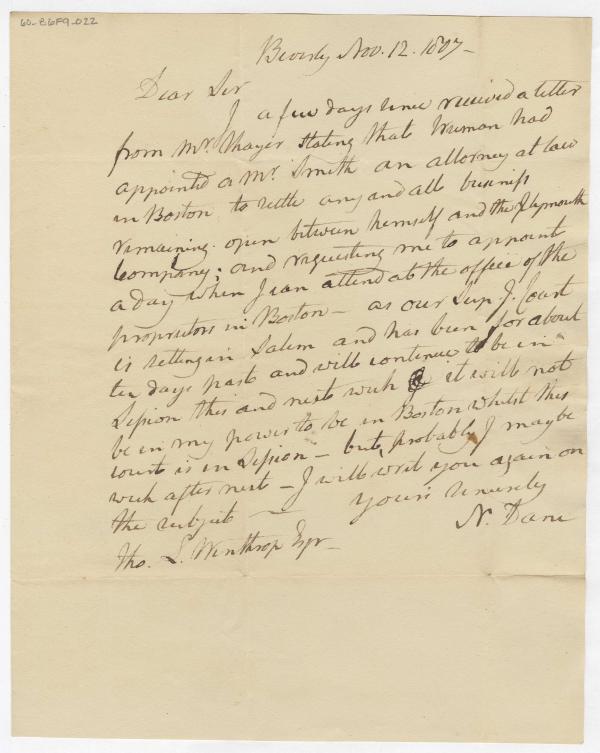 60-B6F9-022
Beverly Nov. 12. 1807 -
Dear Sir
I a few days since received a letter
from Mr. Thayer stating that Wuman had
appointed a Mr. Smith an attorney at law
in Boston to settle any and all business
remaining open between himself and the Plymouth
Company; and requesting me to appoint
a day when I can attend at the office of the
proprietors in Boston - as our Sup. J. Court
is setting in Salem and has been for about
ten days past and will continue to be in
Session this and next week it will not
be in my power to be in Boston whilst this
court is in Session - but, probably I may be
week after next - I will writ you again on
the subject -
yours sincerely
N. Dane
Tho. L. Winthrop Esqr -